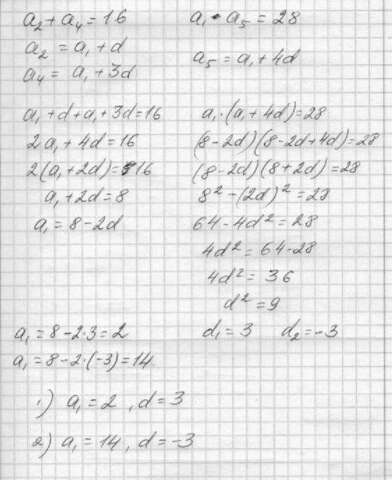 a₂ + a₄ = 16
a₂ = a₁ + d
a₄ = a₁ + 3d
a₁ · a₅ = 28
a₅ = a₁ + 4d
a₁ + d + a₁ + 3d = 16
2a₁ + 4d = 16
2(a₁ + 2d) = 16
a₁ + 2d = 8
a₁ = 8 - 2d
a₁ · (a₁ + 4d) = 28
(8 - 2d)(8 - 2d + 4d) = 28
(8 - 2d)(8 + 2d) = 28
8² - (2d)² = 28
64 - 4d² = 28
4d² = 64 - 28
4d² = 36
d² = 9
d₁ = 3 d₂ = -3
a₁ = 8 - 2·3 = 2
a₁ = 8 - 2·(-3) = 14
1) a₁ = 2, d = 3
2) a₁ = 14, d = -3